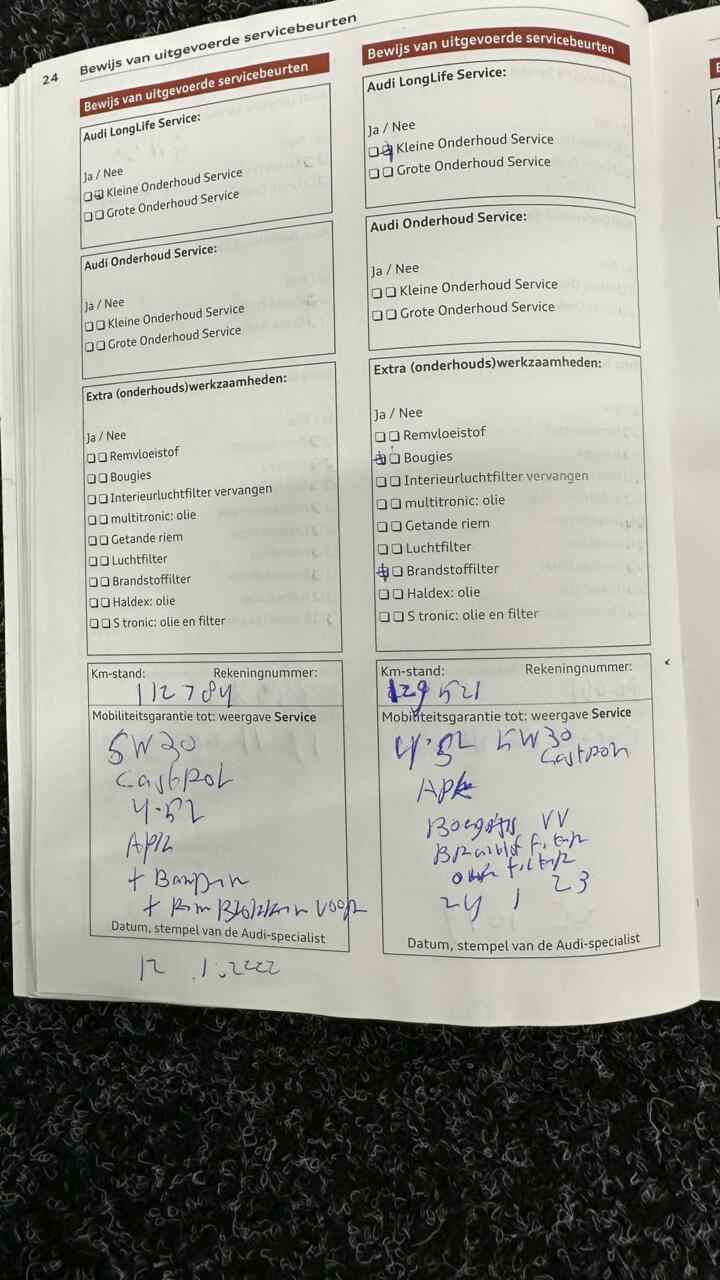 24 Bewijs van uitgevoerde servicebeurten
Bewijs van uitgevoerde servicebeurten
Audi LongLife Service:
Ja / Nee
Kleine Onderhoud Service
Grote Onderhoud Service
Audi Onderhoud Service:
Ja / Nee
Kleine Onderhoud Service
Grote Onderhoud Service
Extra (onderhouds)werkzaamheden:
Ja / Nee
Remvloeistof
Bougies
Interieurluchtfilter vervangen
multitronic: olie
Getande riem
Luchtfilter
Brandstoffilter
Haldex: olie
S tronic: olie en filter
Km-stand: Rekeningnummer:
112 784
Mobiliteitsgarantie tot: weergave Service
5W30
Castrol
4.52
Apk
+ Banden
+ Remblokken voor
Datum, stempel van de Audi-specialist
12 .1.2022
Bewijs van uitgevoerde servicebeurten
Audi LongLife Service:
Ja / Nee
Kleine Onderhoud Service
Grote Onderhoud Service
Audi Onderhoud Service:
Ja / Nee
Kleine Onderhoud Service
Grote Onderhoud Service
Extra (onderhouds)werkzaamheden:
Ja / Nee
Remvloeistof
Bougies
Interieurluchtfilter vervangen
multitronic: olie
Getande riem
Luchtfilter
Brandstoffilter
Haldex: olie
S tronic: olie en filter
Km-stand: Rekeningnummer:
129 521
Mobiliteitsgarantie tot: weergave Service
4.52 5W30
Castrol
Apk
VV
filter
filter
24 1 23
Datum, stempel van de Audi-specialist